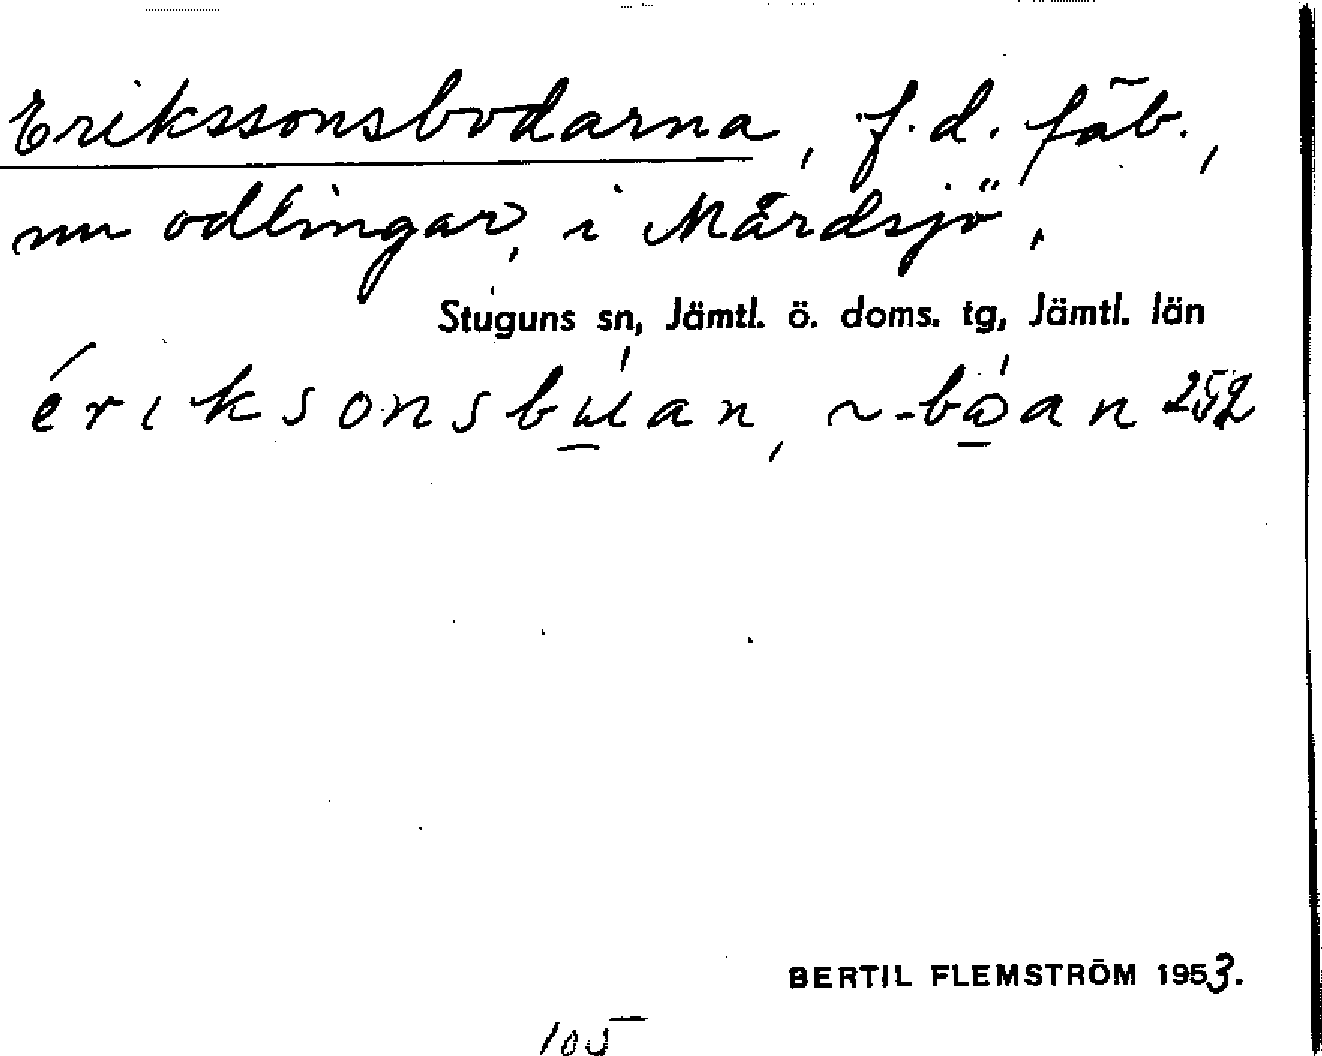 Erikssonsbodarna, f.d. fäb.,
nu odlingar, i Mårdsjö,
Stuguns sn, Jämtl. ö. doms. tg, Jämtl. län
ériksonsbú̲an, ~-bώ̲an 252
BERTIL FLEMSTRÖM 1953.
105